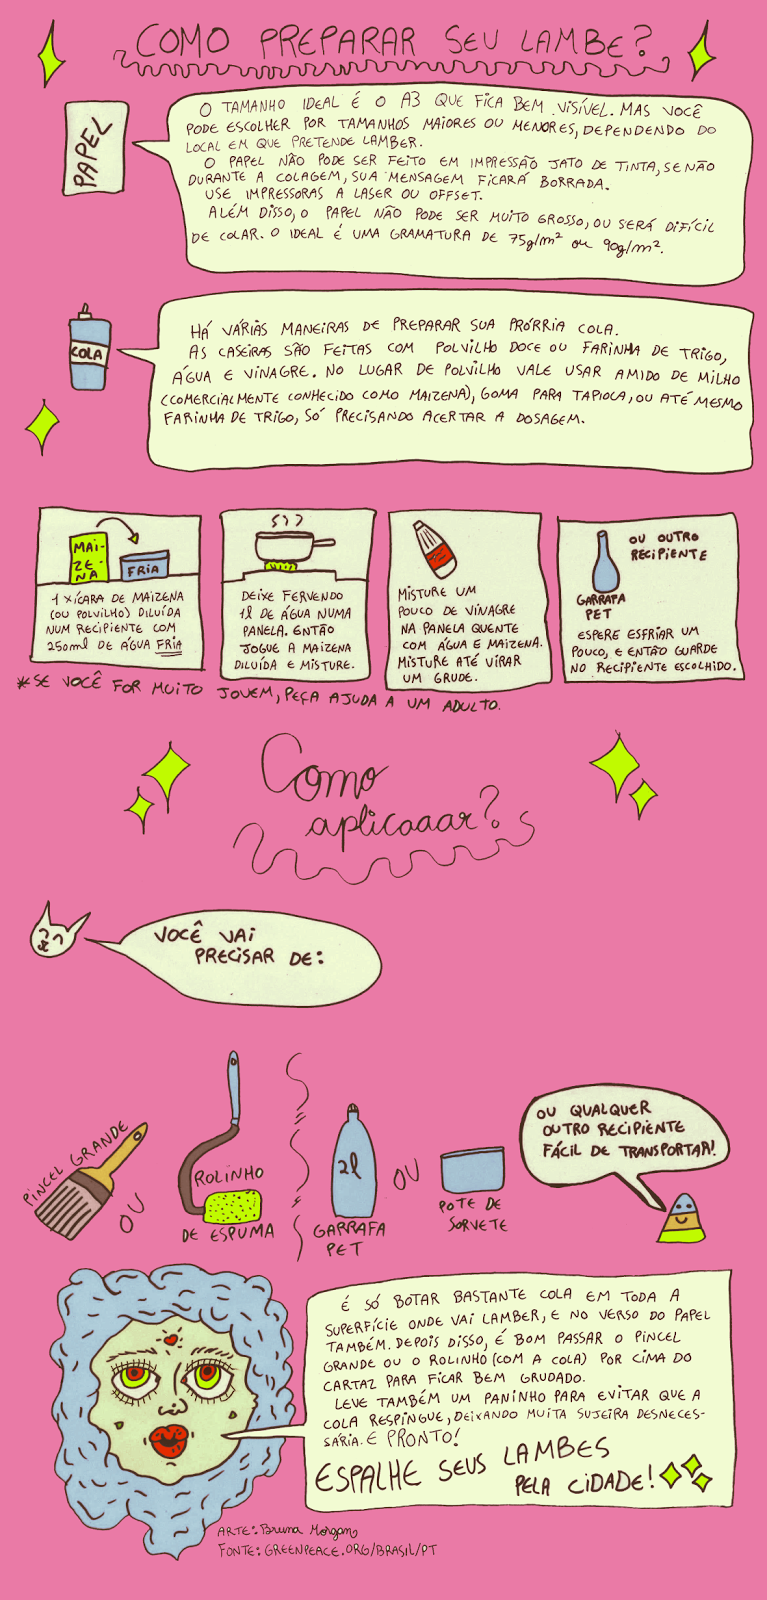 COMO PREPARAR SEU LAMBE?
PAPEL
O TAMANHO IDEAL É O A3 QUE FICA BEM VISÍVEL. MAS VOCÊ
PODE ESCOLHER POR TAMANHOS MAIORES OU MENORES, DEPENDENDO DO
LOCAL EM QUE PRETENDE LAMBER.
O PAPEL NÃO PODE SER FEITO EM IMPRESSÃO JATO DE TINTA, SE NÃO
DURANTE A COLAGEM, SUA MENSAGEM FICARÁ BORRADA.
USE IMPRESSORAS A LASER OU OFFSET.
ALÉM DISSO, O PAPEL NÃO PODE SER MUITO GROSSO, OU SERÁ DIFÍCIL
DE COLAR. O IDEAL É UMA GRAMATURA DE 75g/m² ou 90g/m².
COLA
HÁ VÁRIAS MANEIRAS DE PREPARAR SUA PRÓRRIA COLA.
AS CASEIRAS SÃO FEITAS COM POLVILHO DOCE OU FARINHA DE TRIGO,
ÁGUA E VINAGRE. NO LUGAR DE POLVILHO VALE USAR AMIDO DE MILHO
(COMERCIALMENTE CONHECIDO COMO MAIZENA), GOMA PARA TAPIOCA, OU ATÉ MESMO
FARINHA DE TRIGO, SÓ PRECISANDO ACERTAR A DOSAGEM.
MAI-
ZE-
NA
FRIA
1 XÍCARA DE MAIZENA
(OU POLVILHO) DILUÍDA
NUM RECIPIENTE COM
250ml DE ÁGUA FRIA
DEIXE FERVENDO
1l DE ÁGUA NUMA
PANELA. ENTÃO
JOGUE A MAIZENA
DILUÍDA E MISTURE.
MISTURE UM
POUCO DE VINAGRE
NA PANELA QUENTE
COM ÁGUA E MAIZENA.
MISTURE ATÉ VIRAR
UM GRUDE.
OU OUTRO
RECIPIENTE
GARRAFA
PET
ESPERE ESFRIAR UM
POUCO, E ENTÃO GUARDE
NO RECIPIENTE ESCOLHIDO.
*SE VOCÊ FOR MUITO JOVEM, PEÇA AJUDA A UM ADULTO.
Como
aplicaaar?
VOCÊ VAI
PRECISAR DE:
PINCEL GRANDE
OU
ROLINHO
DE ESPUMA
2l
GARRAFA
PET
OU
POTE DE
SORVETE
OU QUALQUER
OUTRO RECIPIENTE
FÁCIL DE TRANSPORTAR!
É SÓ BOTAR BASTANTE COLA EM TODA A
SUPERFÍCIE ONDE VAI LAMBER, E NO VERSO DO PAPEL
TAMBÉM. DEPOIS DISSO, É BOM PASSAR O PINCEL
GRANDE OU O ROLINHO (COM A COLA) POR CIMA DO
CARTAZ PARA FICAR BEM GRUDADO.
LEVE TAMBÉM UM PANINHO PARA EVITAR QUE A
COLA RESPINGUE, DEIXANDO MUITA SUJEIRA DESNECES-
SÁRIA. E PRONTO!
ESPALHE SEUS LAMBES
PELA CIDADE!
ARTE: Bruna Morgan
FONTE: GREENPEACE.ORG/BRASIL/PT